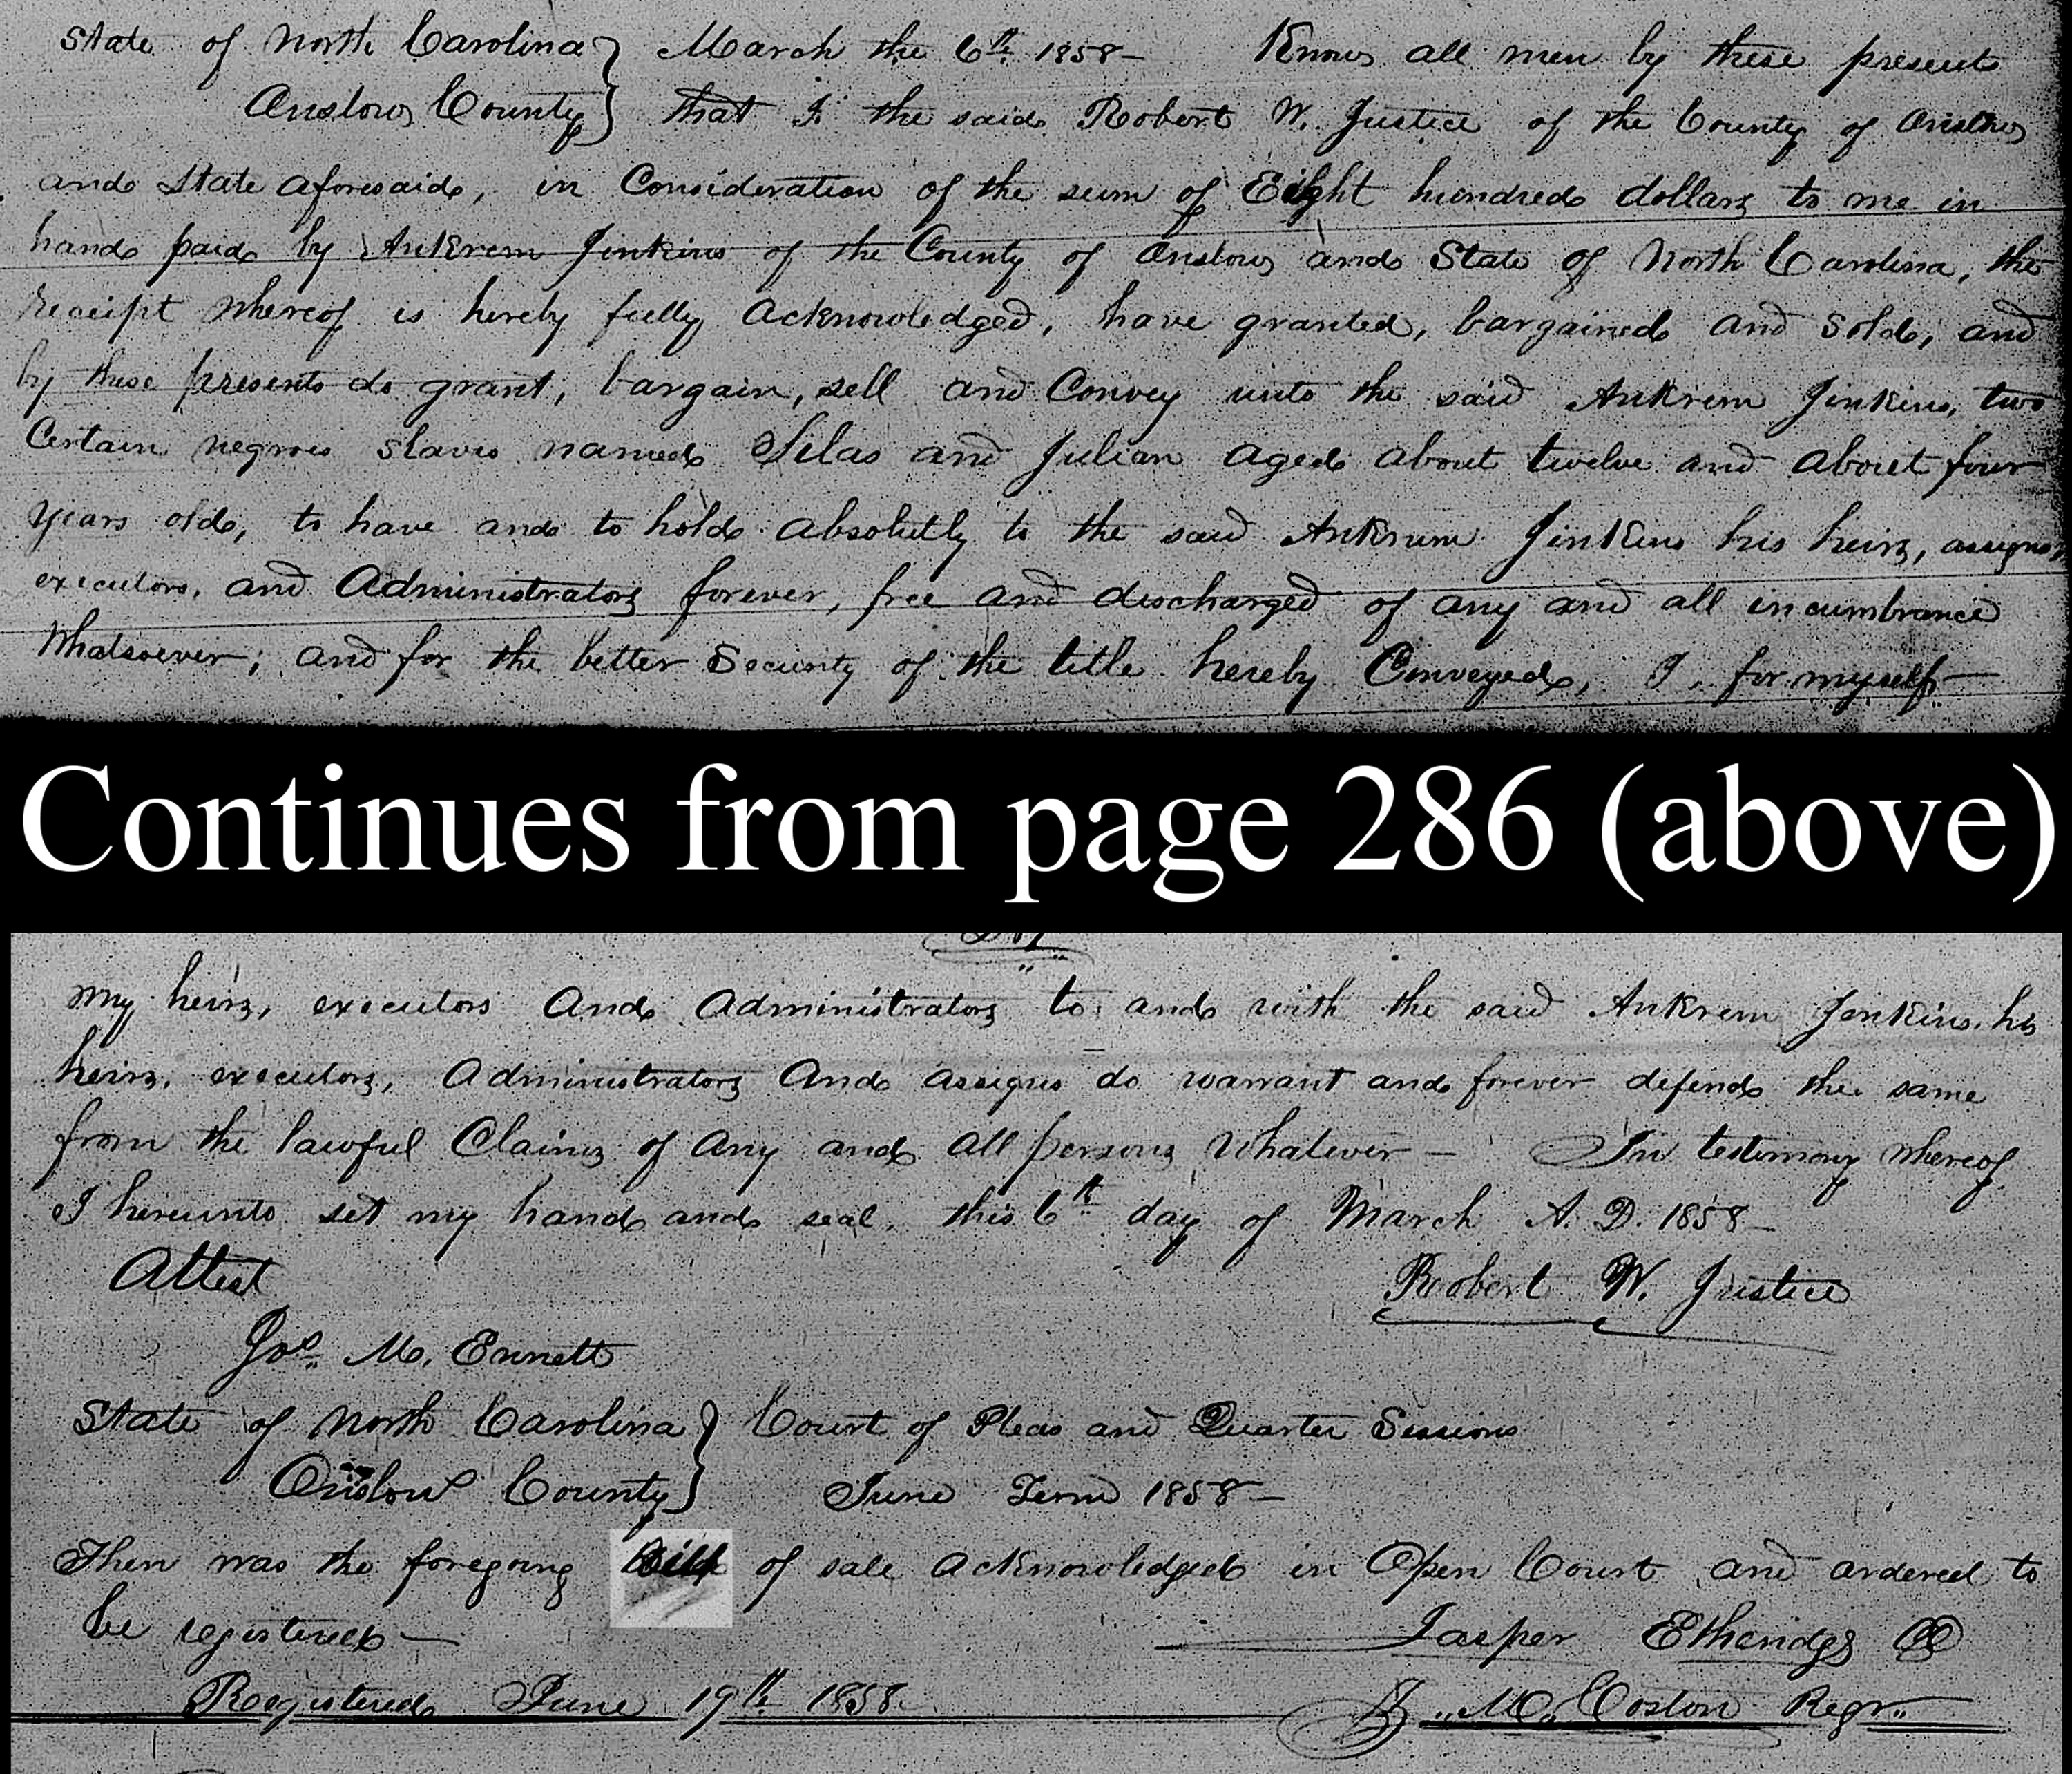 State of North Carolina } March the 6th 1858— Know all men by these present
Onslow County } that I the said Robert W. Justice of the County of Onslow
and State aforesaid, in Consideration of the sum of Eight hundred dollars to me in
hand paid by Ankrem Jinkins of the County of Onslow and State of North Carolina, the
receipt whereof is hereby fully acknowledged, have granted, bargained and sold, and
by these presents do grant, bargain, sell and Convey unto the said Ankrem Jinkins, two
Certain negroes slaves named Silas and Julian aged about twelve and about four
years old, to have and to hold absolutly to the said Ankrum Jinkins his heirs, assigns,
executors, and Administrators forever, free and discharged of any and all incumbrance
Whatsoever; and for the better Security of the title hereby Conveyed, I, for myself—
Continues from page 286 (above)
My heirs, executors and administrators to and with the said Ankrem Jenkins, his
heirs, executors, Administrators and assigns do warrant and forever defend the same
from the lawful Claims of any and all persons whatever— In testimony whereof
I hereunto set my hand and seal, this 6th day of March A. D. 1858—
Attest Robert W. Justice
Jno. M. Ennett
State of North Carolina } Court of Pleas and Quarter Sessions
Onslow County } June Term 1858—
Then was the foregoing Bill of sale acknowledged in Open Court and ordered to
be registered— Jasper Etheridge CC
Registered June 19th 1858. M. Coston Regr.